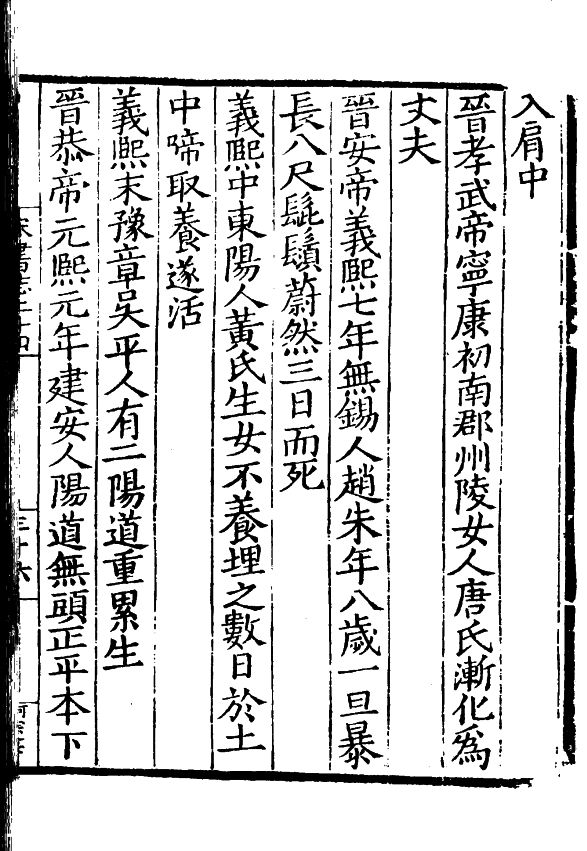 入肩中
晉孝武帝寧康初南郡州陵女人唐氏漸化爲
丈夫
晉安帝義熙七年無錫人趙朱年八歲一旦暴
長八尺髭鬚蔚然三日而死
義熙中東陽人黃氏生女不養埋之數日於土
中啼取養遂活
義熙末豫章吳平人有二陽道重累生
晉恭帝元熙元年建安人陽道無頭正平本下